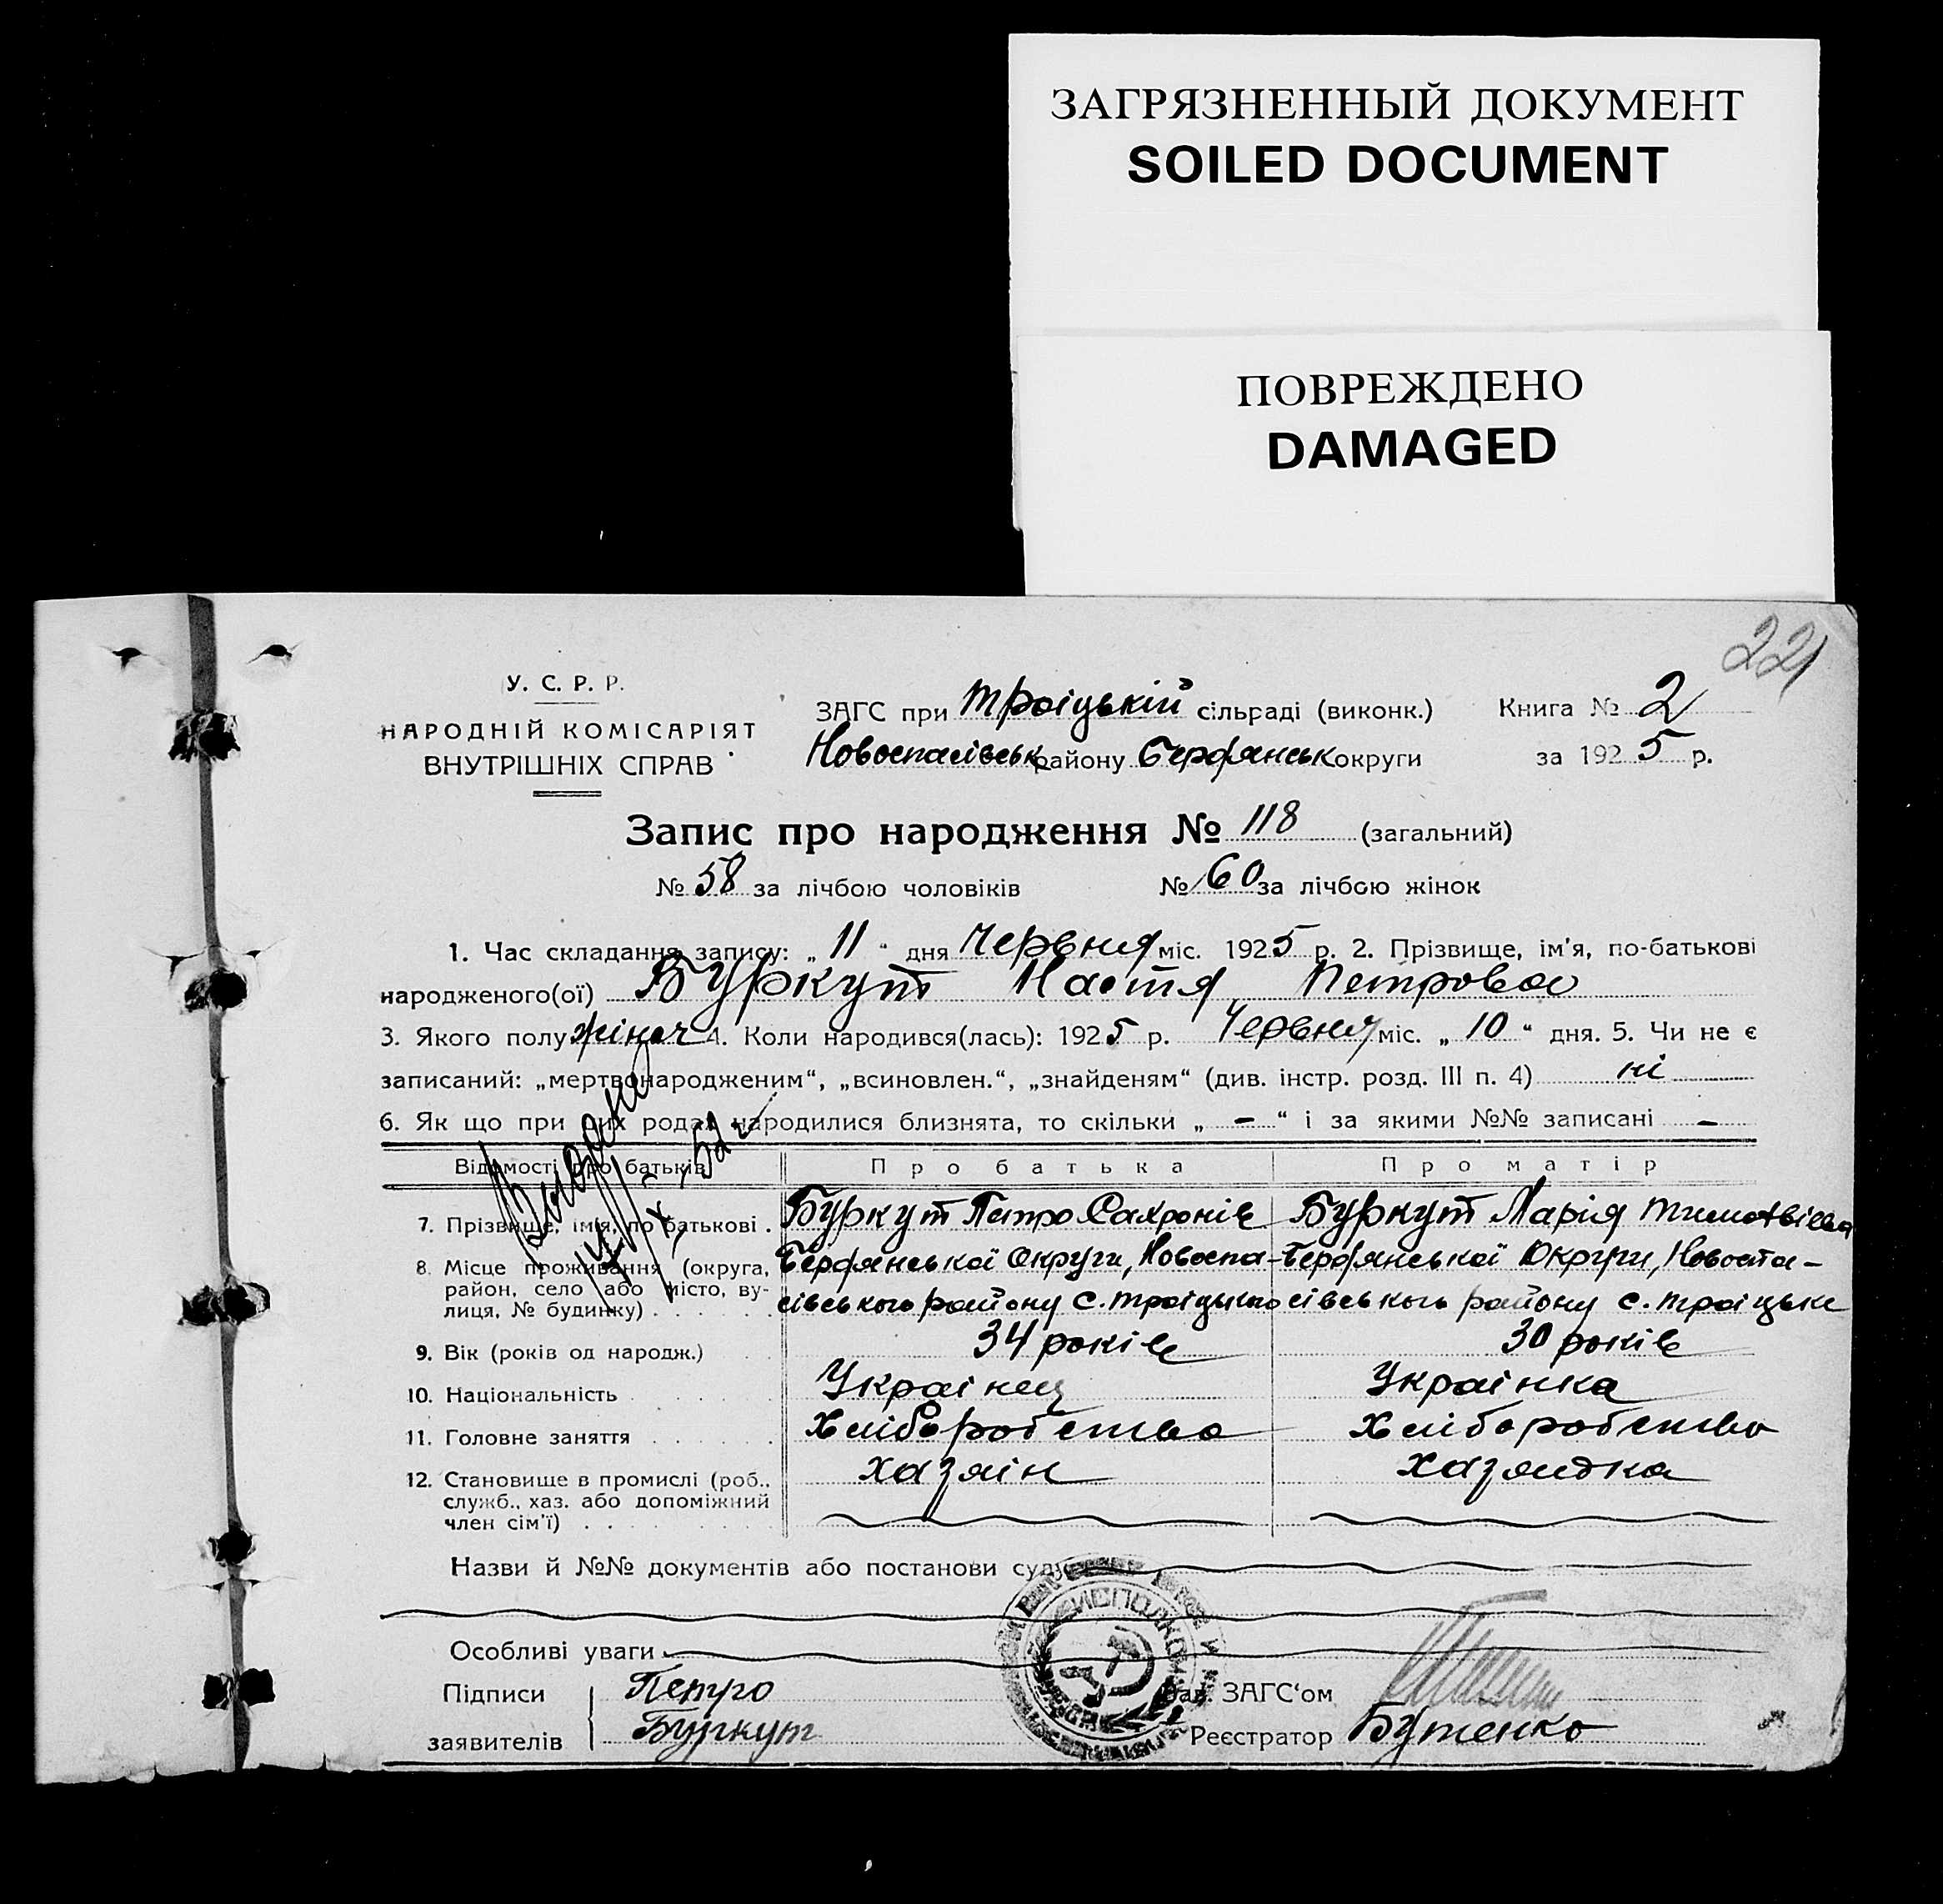 ЗАГРЯЗНЕННЫЙ ДОКУМЕНТ
SOILED DOCUMENT
ПОВРЕЖДЕНО
DAMAGED
221
У. С. Р. Р.
НАРОДНІЙ КОМІСАРІЯТ
ВНУТРІШНІХ СПРАВ
ЗАГС при Троіцькій сільраді (виконк.)
Новоспасівськ району Бердянськ округи
Книга № 2
за 1925 р.
Запис про народження № 118 (загальний)
№ 58 за лічбою чоловіків № 60 за лічбою жінок
1. Час складання запису: „ 11 “ дня Червня міс. 1925 р. 2. Прізвище, ім'я, по-батькові
народженого(ої) Буркут Настя Петровна
3. Якого полу жіноч 4. Коли народився(лась): 1925 р. Червня міс. „ 10 “ дня. 5. Чи не є
записаний: „мертвонародженим“, „всиновлен.“, „знайденям“ (див. інстр. розд. III п. 4) ні
6. Як що при цих родах народилися близнята, то скільки „ – “ і за якими №№ записані –
Видано
Відомості про батьків Про батька Про матір
7. Прізвище, імія, по батькові . Буркут Петро Сахронів Буркут Марія Тимотвіевна
8. Місце проживання (округа, Бердянськоі Округи, Новоспа- Бердянськоі Округи, Новоспа-
район, село або місто, ву- сівського району с. Троіцьке сівського району с. Троіцьке
лиця, № будинку) . . . . . .
9. Вік (років од народж.) . . 34 років 30 років
10. Національність . . . . Украінец Украінка
11. Головне заняття . . . . . . Хліборобство Хліборобство
12. Становище в промислі (роб., Хазяін Хазяидка
служб., хаз. або допоміжний
член сім'ї) . . . . . . . . .
Назви й №№ документів або постанови суду
Особливі уваги
Підписи Петро
заявителів Буркут
Зав. ЗАГС‘ом
Реєстратор Бутенко